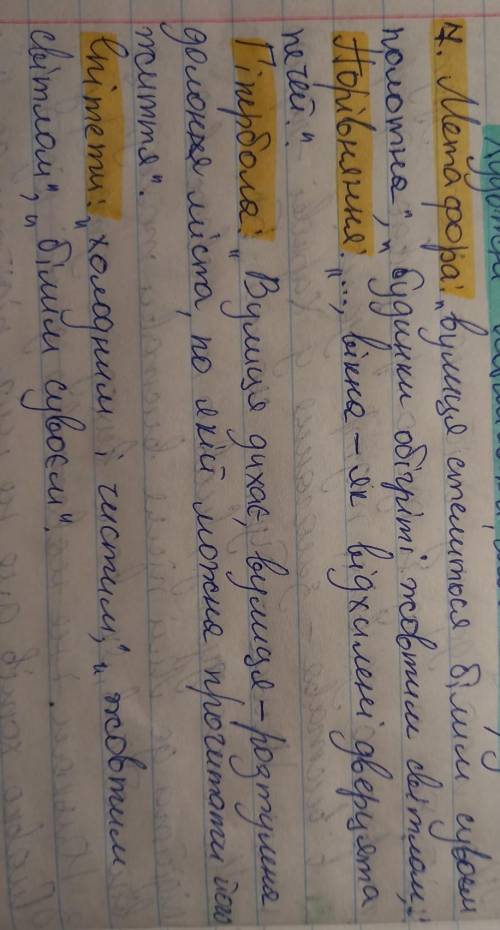 7. Метафора: „вулиця стелиться білим сувоєм
полотна", „будинки обігріті жовтим світлом";
Порівняння: „..., вікна – як відхилені дверцята
печей".
Гіпербола: „Вулиця дихає, вулиця – розтулена
долоня міста, по якій можна прочитати його
життя".
Епітети: „холодним і чистим", „жовтим
світлом", „білим сувоєм".